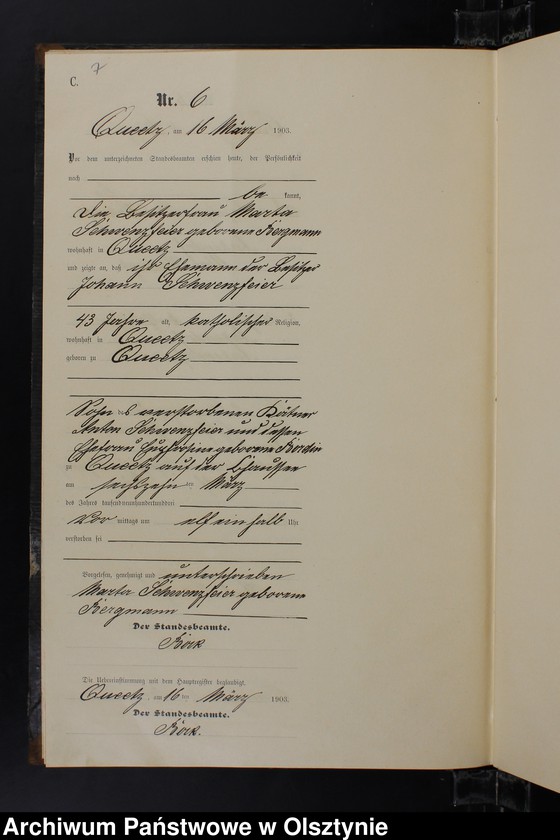 7
C.
Nr. 6
Queetz, am 16 März 1903.
Vor dem unterzeichneten Standesbeamten erschien heute, der Persönlichkeit
nach
be kannt,
die Besitzerfrau Marta
Schwenzfeier geborene Bergmann
wohnhaft in Queetz
und zeigte an, daß ihr Ehemann der Besitzer
Johann Schwenzfeier
43 Jahre alt, katholischer Religion,
wohnhaft in Queetz
geboren zu Queetz
Sohn des verstorbenen Kätner
Anton Schwenzfeier und dessen
Ehefrau Euphrosine geborene
zu Queetz auf der Chaussee
am sechszehn ten März
des Jahres tausendneunhundertunddrei
Vor mittags um elf einhalb Uhr
verstorben sei
Vorgelesen, genehmigt und unterschrieben
Marta Schwenzfeier geborene
Bergmann
Der Standesbeamte.
Die Uebereinstimmung mit dem Hauptregister beglaubigt.
Queetz, am 16 ten März 1903.
Der Standesbeamte.
Archiwum Państwowe w Olsztynie